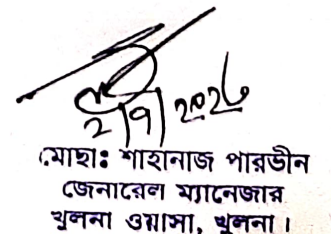 মোছাঃ শাহানাজ পারভীন
জেনারেল ম্যানেজার
খুলনা ওয়াসা, খুলনা।